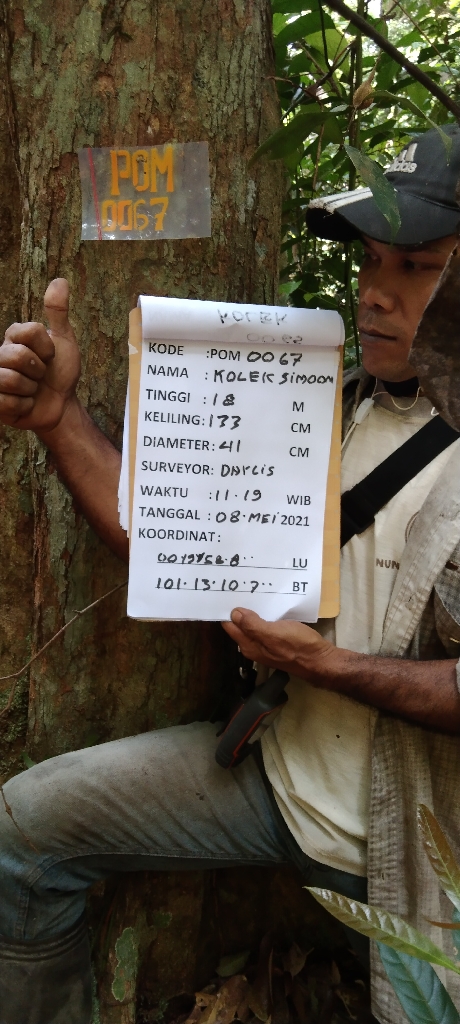 POM
0067
adidas
KODE :POM 0067
NAMA : KOLEK SIMOOM
TINGGI : 18 M
KELILING: 133 CM
DIAMETER: 41 CM
SURVEYOR: DARLIS
WAKTU : 11.19 WIB
TANGGAL : 08.MEI 2021
KOORDINAT:
LU
101.13.10.7" BT
NUN